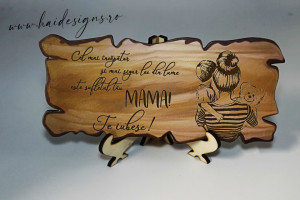 www.haidesigns.ro
Cel mai încăpător
și mai sigur loc din lume
este sufletul tău
MAMA!
Te iubesc!